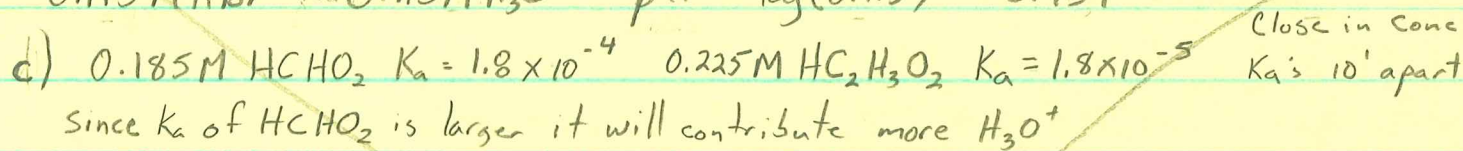 c) 0.185M HCHO₂ Ka = 1.8 x 10⁻⁴ 0.225M HC₂H₃O₂ Ka = 1.8x10⁻⁵
Close in conc
Ka's 10¹ apart
Since Ka of HCHO₂ is larger it will contribute more H₃O⁺